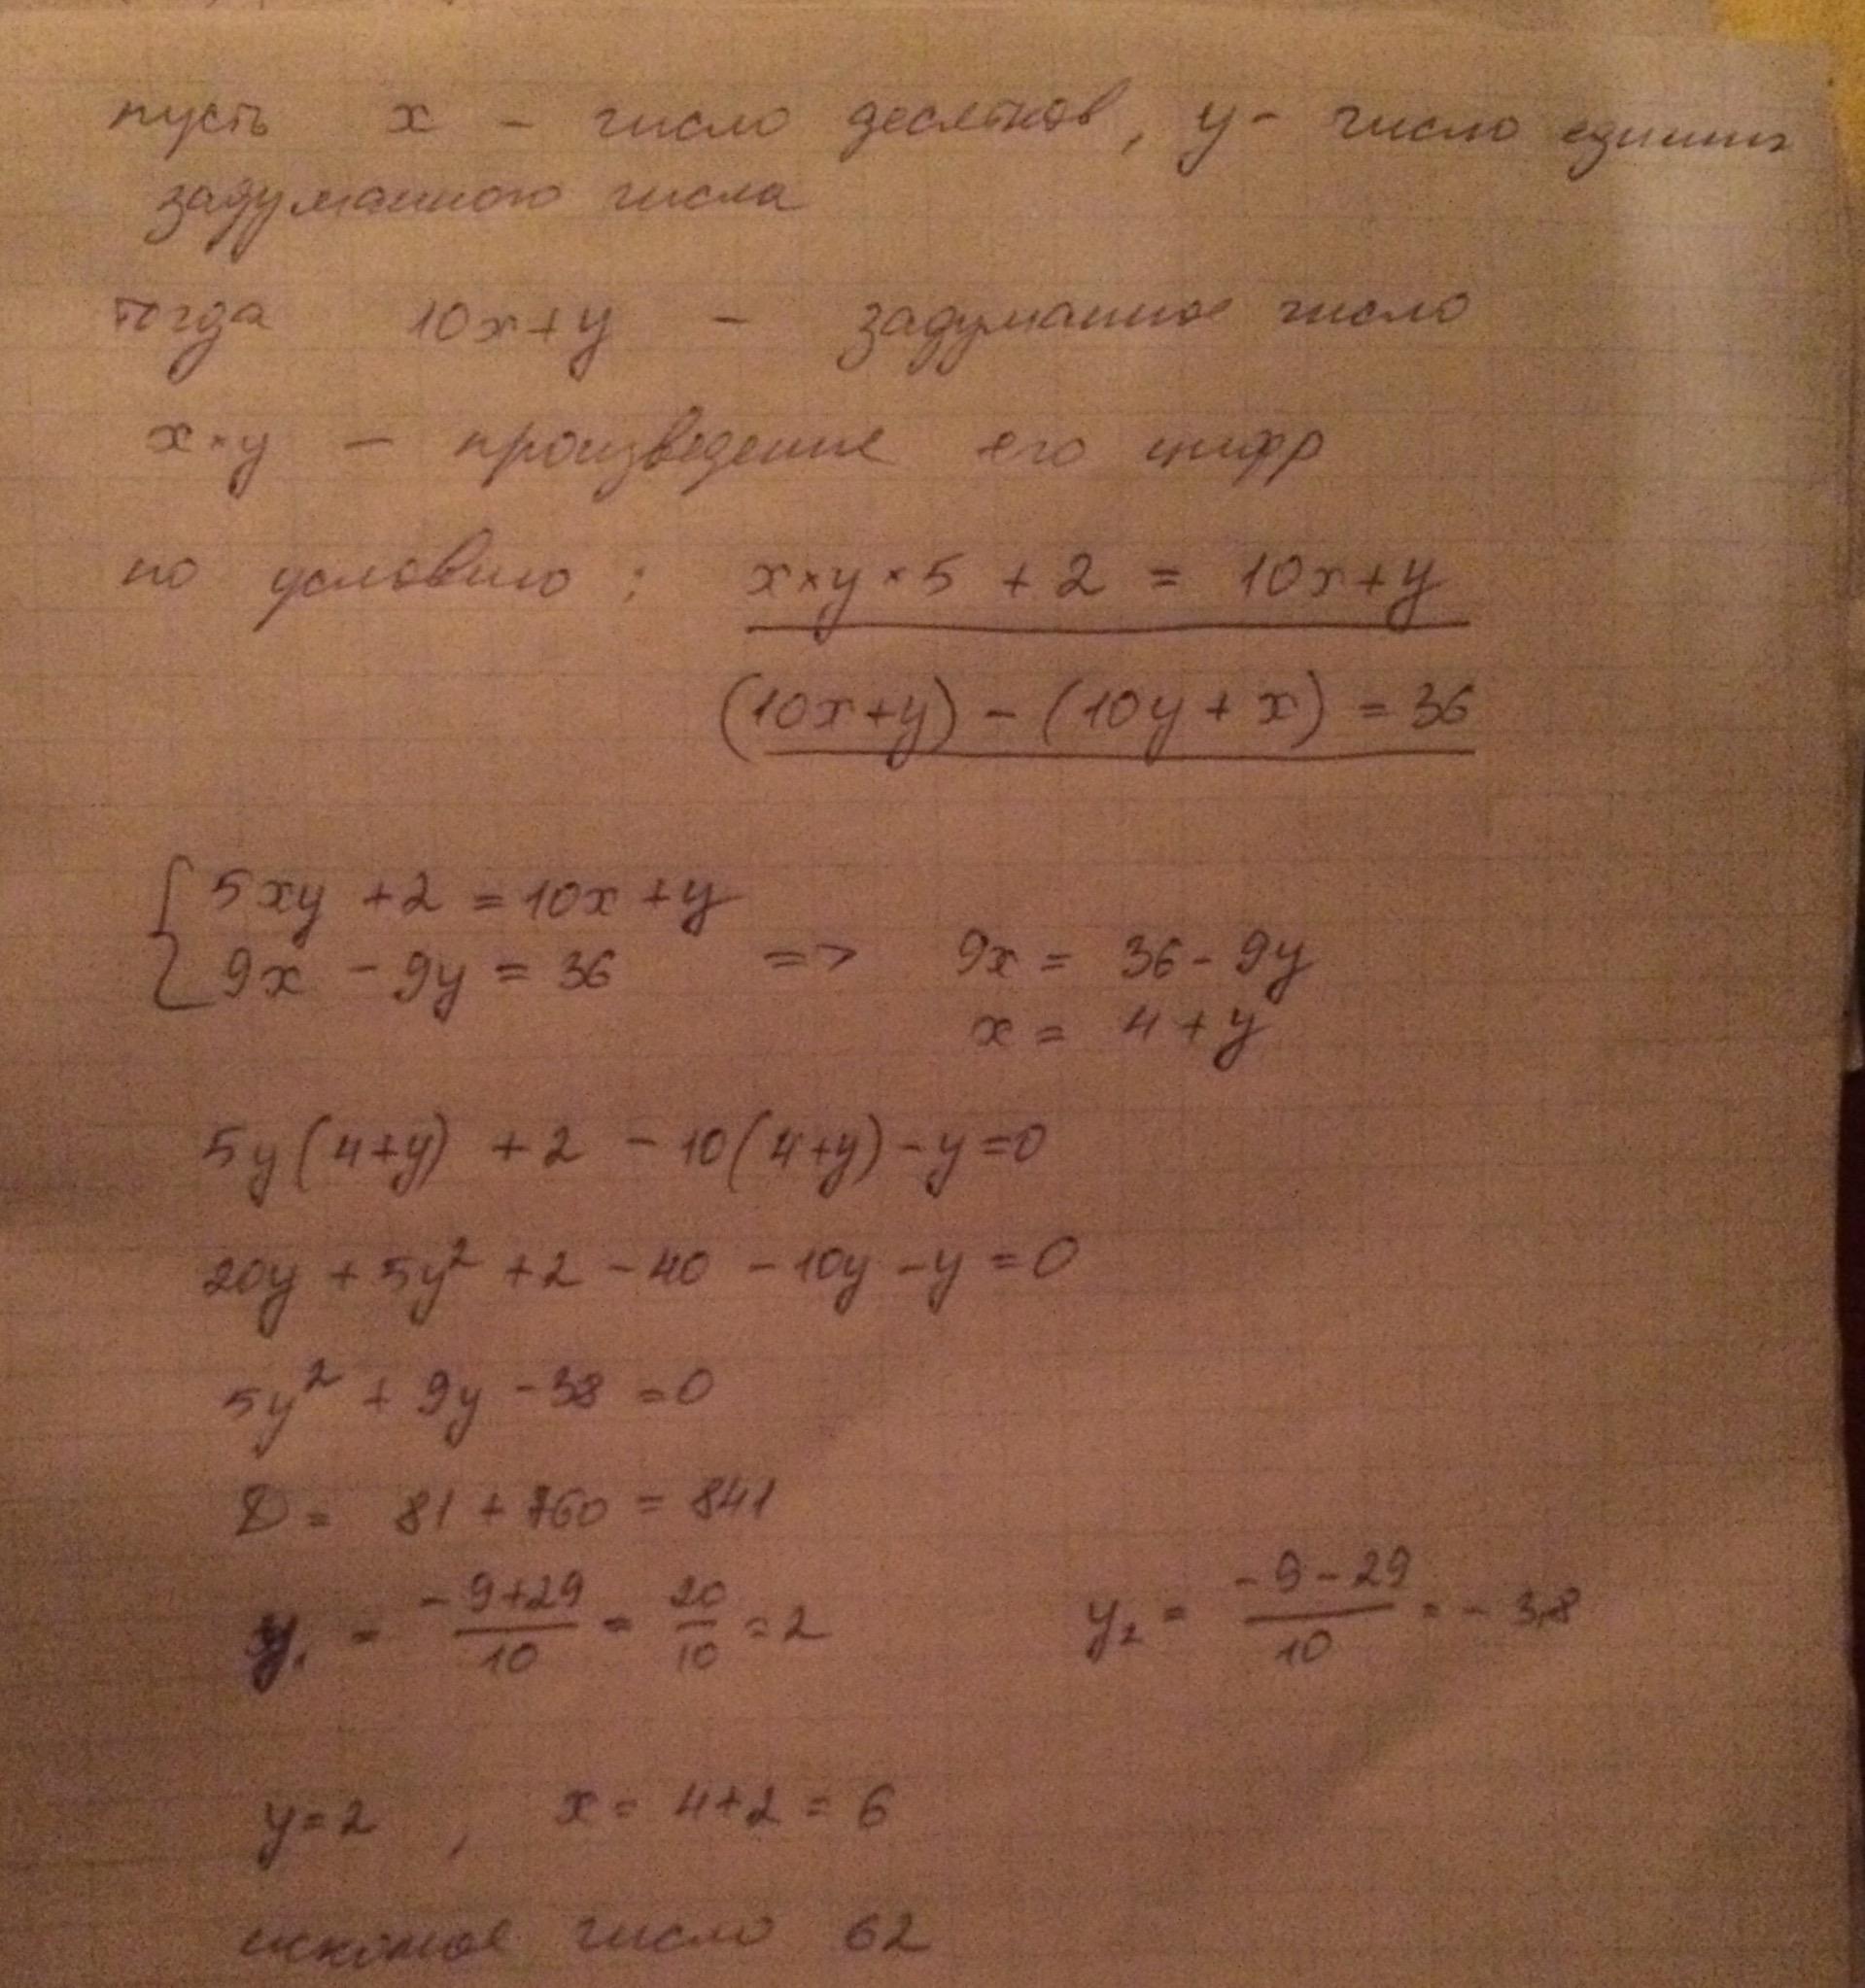 пусть x - число десятков, y - число единиц
задуманного числа
тогда 10x+y - задуманное число
x·y - произведение его цифр
по условию: x×y×5 + 2 = 10x+y
(10x+y) - (10y+x) = 36
{ 5xy + 2 = 10x + y
9x - 9y = 36 => 9x = 36 - 9y
x = 4 + y
5y(4+y) + 2 - 10(4+y) - y = 0
20y + 5y² + 2 - 40 - 10y - y = 0
5y² + 9y - 38 = 0
D = 81 + 760 = 841
y₁ = (-9+29)/10 = 20/10 = 2 y₂ = (-9-29)/10 = -3,8
y=2, x = 4+2 = 6
искомое число 62